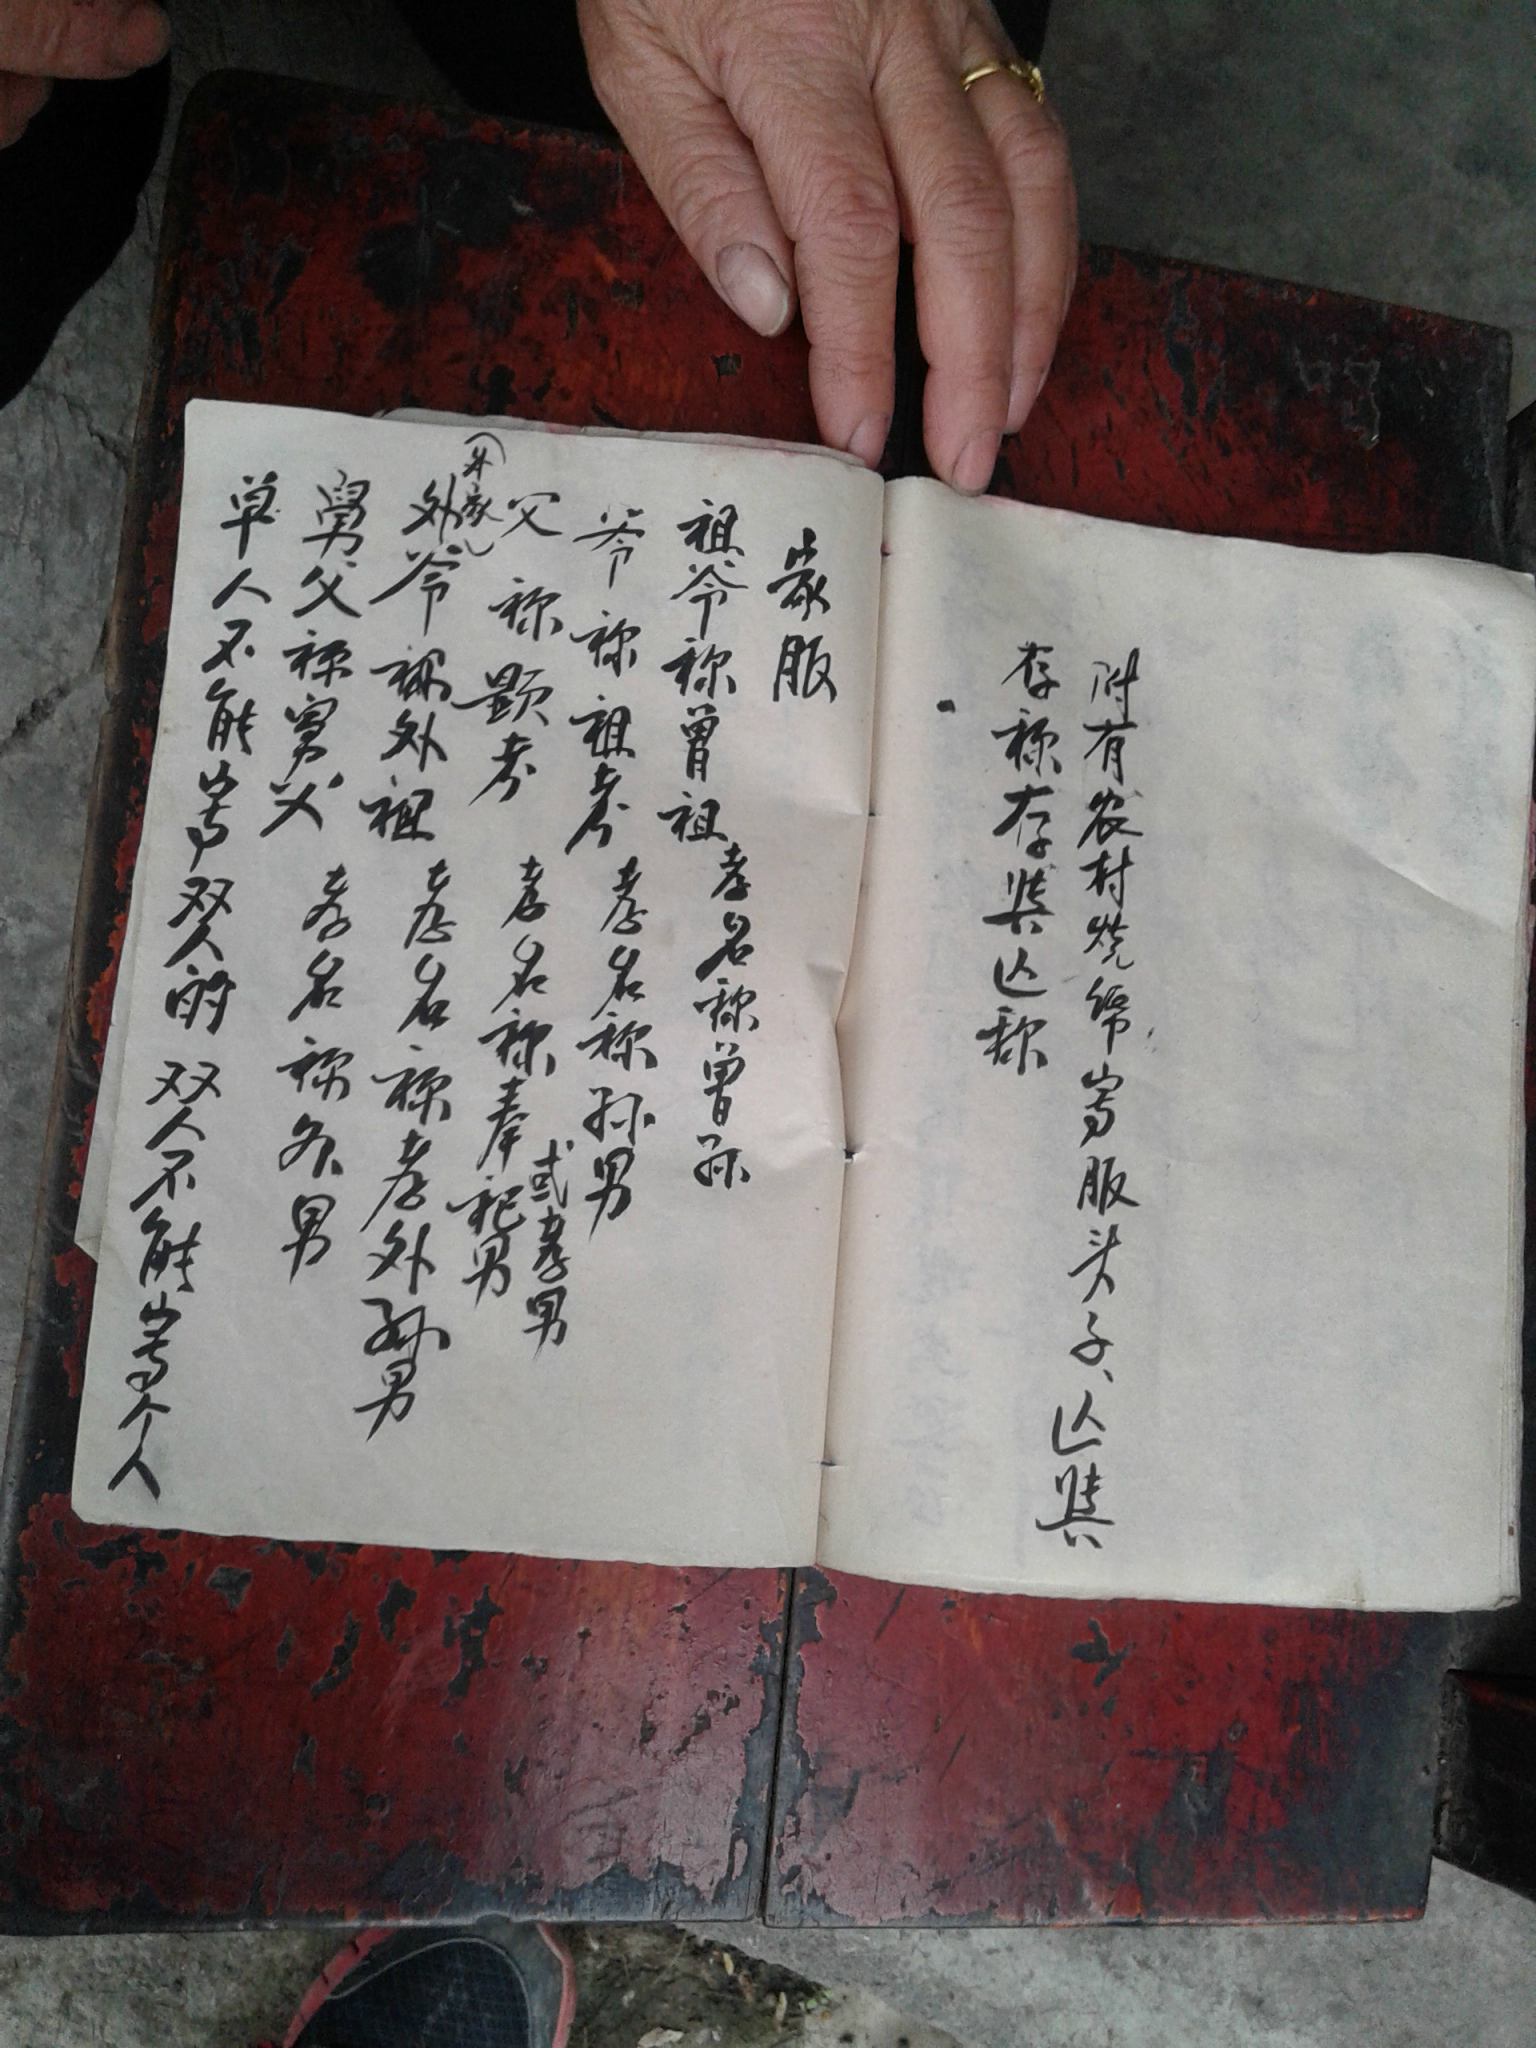 附有农村烧纸写服头子、亡弟
存称存弟亡称
家服
祖爷称曾祖 孝名称曾孙
爷称祖考 孝名称孙男
父称显考 孝名称奉祀男
或孝男
(外家)
外爷称外祖 孝名称孝外孙男
舅父称舅父 孝名称外男
单人不能写双人的 双人不能写个人